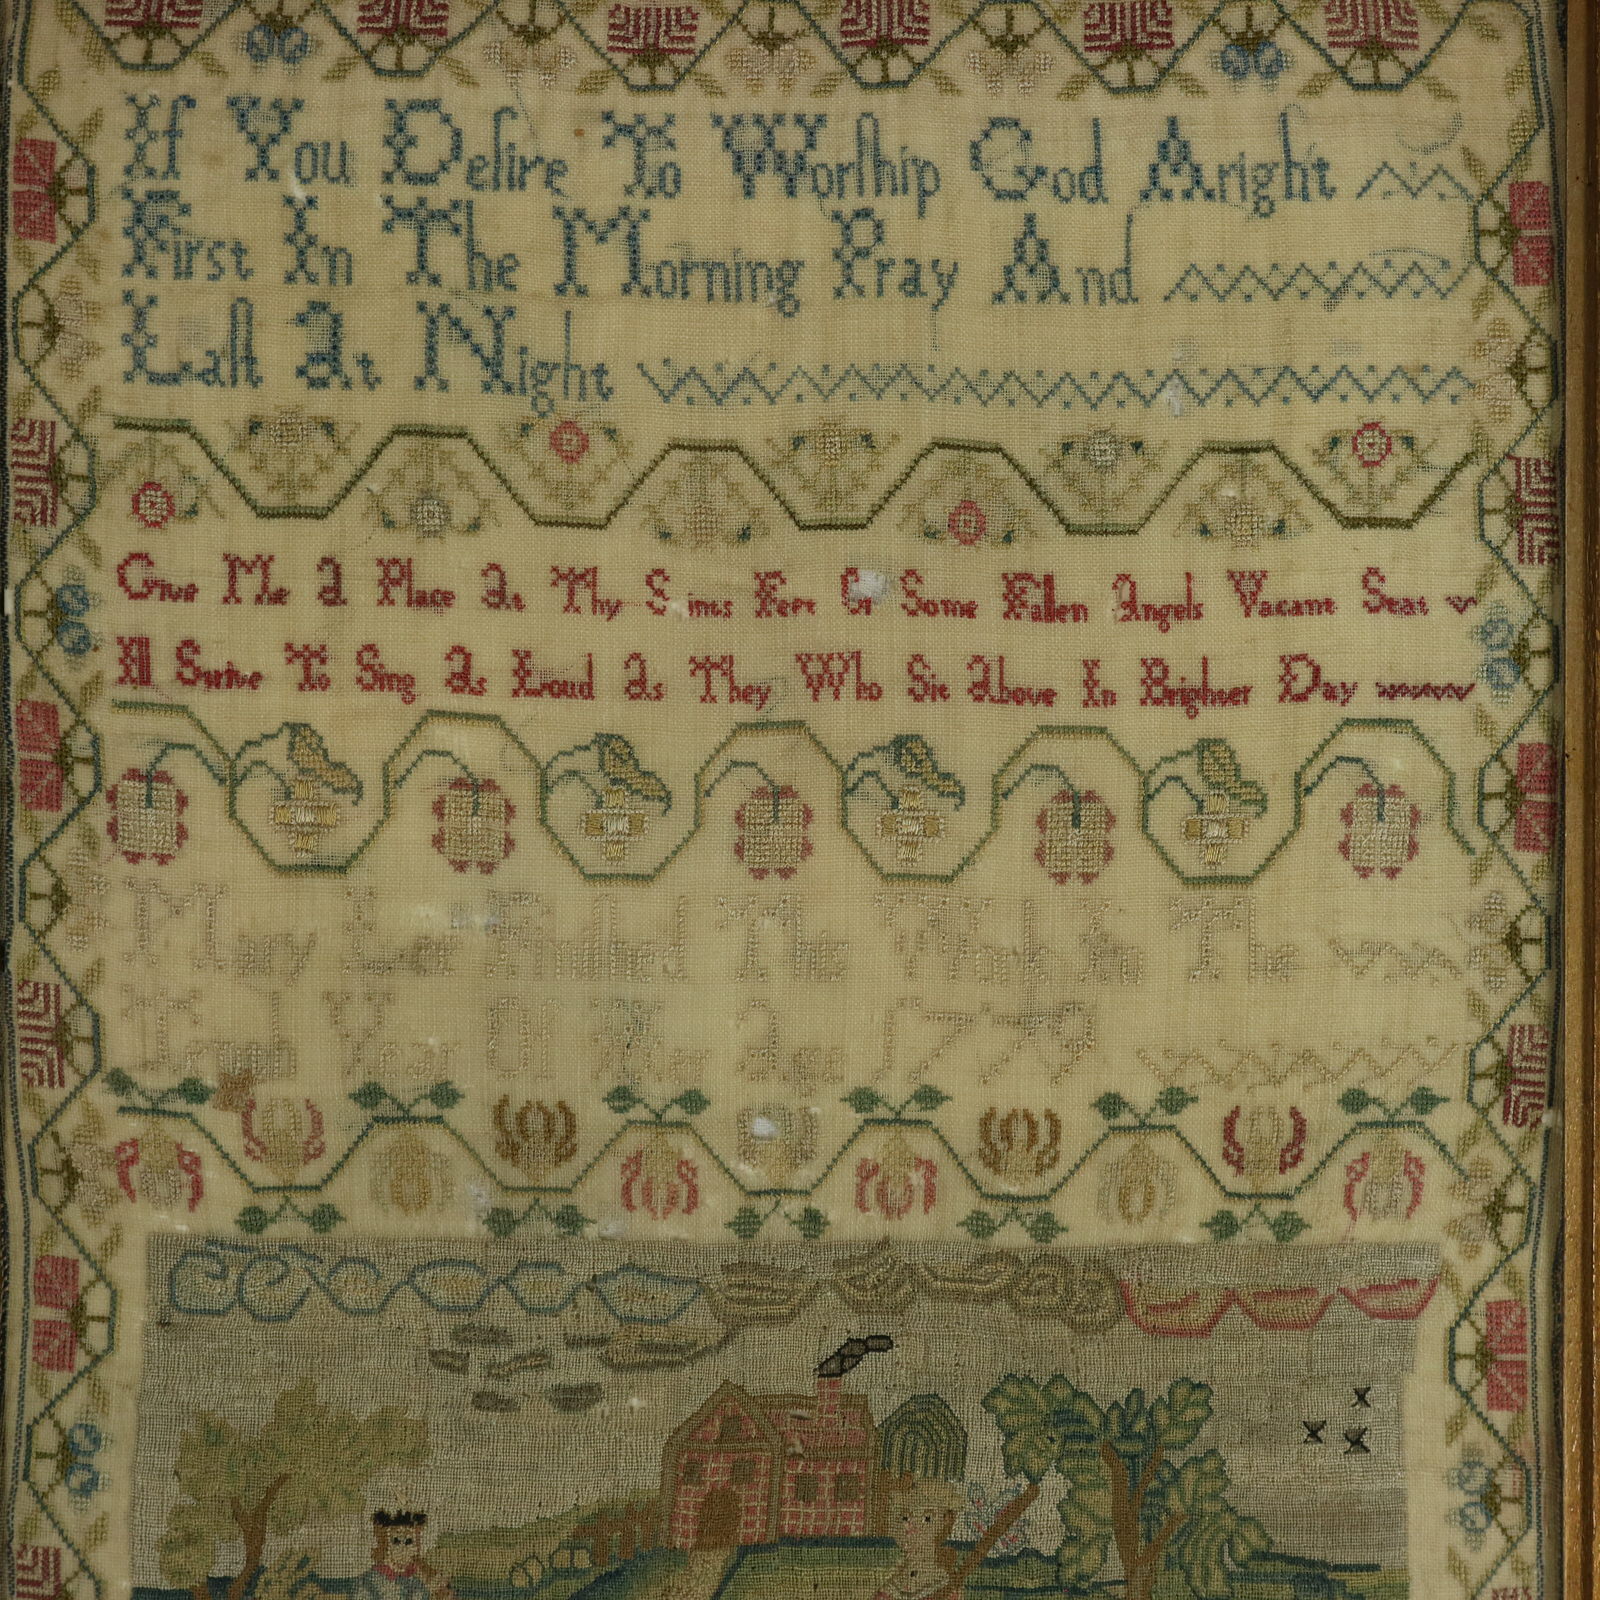 If You Deſire To Worſhip God Aright
First In The Morning Pray And
Laſt At Night
Give Me A Place At Thy Sints Feet Or Some Fallen Angels Vacant Seat
Ill Strive To Sing As Loud As They Who Sit Above In Brighter Day
Mary Finiſhed This Work In The
Tenth Year Of Her Age 1779